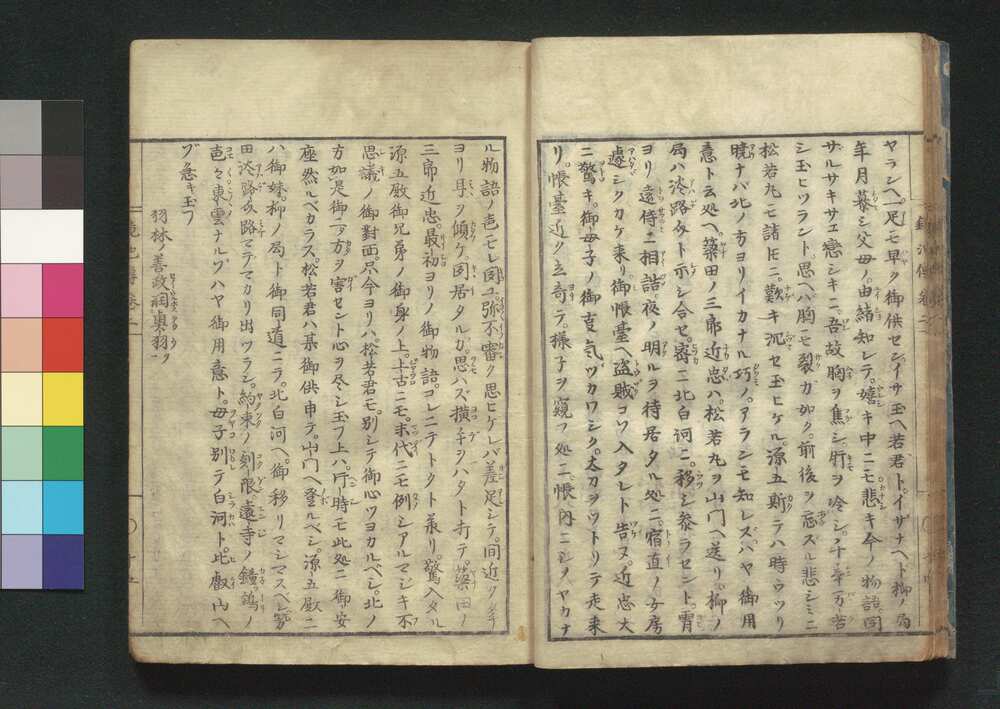 ヤランヘ一足モ早ク御供セン。イサ玉ヘ若君ト。イザナヘト柳ノ局
年月暮シ父母ノ由緒知レテ。嬉キ中ニモ悲キ今ノ物語。同
ザルサキサエ恋シキニ。吾故胸ヲ焦シ。肝ヲ冷シ。千辛万苦
シ玉ヒツラント。思ヘハ胸モ裂カ如ク。前後ヲ忘スル悲シミニ
松若丸モ諸ﾄﾓニ。歎キ沉セ玉ヒケル。源五斯テハ時ウツリ
暁ナバ北ノ方ヨリイカナル巧ノ。アランモ知レズ。ハヤ御用
意ト云処ヘ。築田ノ三郎近忠ハ。松若丸ヲ山門ヘ送リ。柳ノ
局ハ淡路ガ方ト示シ合セ。密ニ北白河ニ。移シ参ラセント。宵
ヨリ遠侍ニ相詰。夜ノ明ルヲ待居タル処ニ。宿直ノ女房
遽シクカケ来リ。御帳臺ヘ盗賊コソ入タレト告ヌ。近忠大
ニ驚キ。御母子ノ御支気ヅカワシク。太刀ヲツトリテ走来
リ。帳臺近ク立寄テ。様子ヲ窺フ処ニ。帳内ニシメヤカナ
ル物語ノ声モレ同ユ。弥不審ク思ヒケレバ差足シテ。間近ク
ヨリ耳ヲ傾ケ同居タルカ。思ハズ横手ヲハタト打テ。築田ノ
三郎近忠。最初ヨリノ御物語。コレニテトクト承リ。驚入タル
源五殿御兄弟ノ御身ノ上。上古ニモ。末代ニモ例シアルマジキ不
思議ノ御對面。只今ヨリハ。松若君モ。別シテ御心ツヨカルベシ。北ノ
方如是御一方ヲ害セント心ヲ尽シ玉フ上ハ。片時モ此処ニ御安
座然ルベカラス。松若君ハ某御供申テ。山門ヘ登ルベシ。源五殿ニ
ハ御妹。柳ノ局ト御同道ニテ。北白河ヘ。御移リマシマスベシ。
田淡路モ路マデマカリ出ツラン。約束ノ刻限。遠寺ノ鐘。鶏ノ
声々東雲ナルゾハヤ御用意ト。母子別テ白河ト。比叡山ヘ
ゾ急キ玉フ
羽林ノ善政祠眞